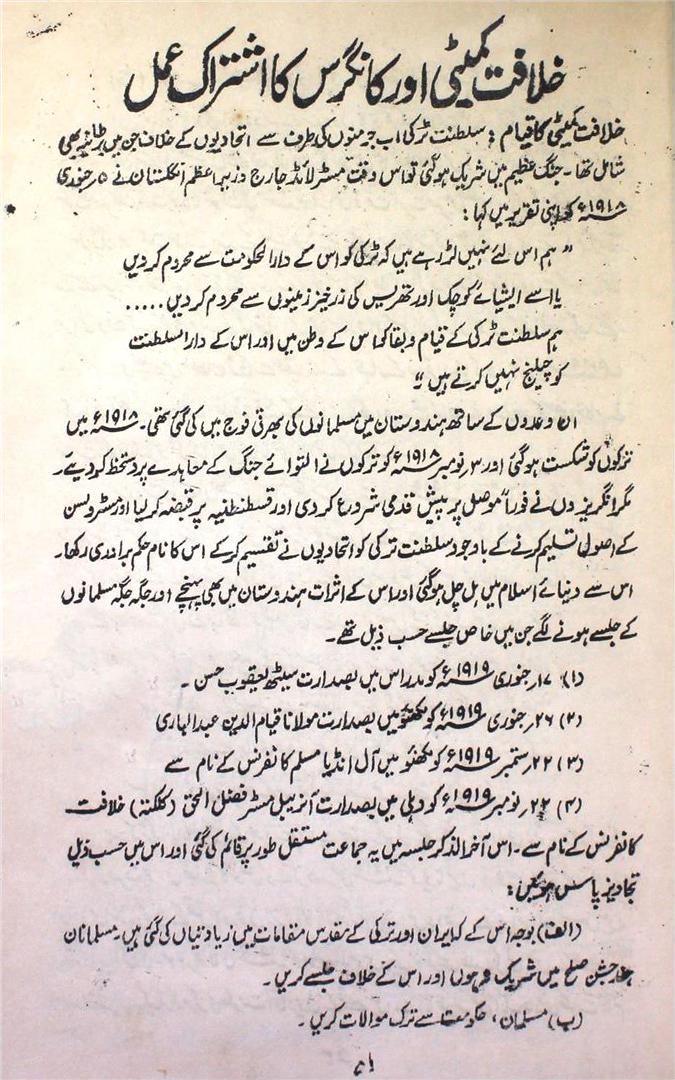 خلافت کمیٹی اور کانگرس کا اشتراک عمل
خلافت کمیٹی کا قیام : سلطنت ٹرکی اب جرمنوں کی طرف سے اتحادیوں کے خلاف جن میں برطانیہ بھی
شامل تھا ۔ جنگ عظیم میں شریک ہوگئی تو اس وقت مسٹر لائڈ جارج وزیر اعظم انگلستان نے ۵ جنوری
۱۹۱۸ء کو اپنی تقریر میں کہا :
" ہم اس لئے نہیں لڑ رہے ہیں کہ ٹرکی کو اس کے دارالحکومت سے محروم کر دیں
یا اسے ایشیائے کوچک اور تھریس کی زرخیز زمینوں سے محروم کر دیں .....
ہم سلطنت ٹرکی کے قیام و بقا کو اس کے وطن میں اور اس کے دارالسلطنت
کو چیلنج نہیں کرتے ہیں "
ان وعدوں کے ساتھ ہندوستان میں مسلمانوں کی بھرتی فوج میں کی گئی تھی ۔ ۱۹۱۸ء میں
ترکوں کو شکست ہوگئی اور ۳ نومبر ۱۹۱۸ء کو ترکوں نے التوائے جنگ کے معاہدے پر دستخط کر دیے ۔
مگر انگریزوں نے فوراً موصل پر پیش قدمی شروع کر دی اور قسطنطنیہ پر قبضہ کر لیا اور مسٹر ولسن
کے اصول تسلیم کرنے کے باوجود سلطنت ترکی کو اتحادیوں نے تقسیم کر کے اس کا نام حکم برادری رکھا ۔
اس سے دنیائے اسلام میں ہل چل ہوگئی اور اس کے اثرات ہندوستان میں بھی پہنچے اور جگہ جگہ مسلمانوں
کے جلسے ہونے لگے جن میں خاص جلسے حسب ذیل تھے ۔
(۱) ۱۷؍ جنوری ۱۹۱۹ء کو مدراس میں بصدارت سیٹھ یعقوب حسن ۔
(۲) ۲۶؍ جنوری ۱۹۱۹ء کو لکھنؤ میں بصدارت مولانا قیام الدین عبدالباری
(۳) ۲۲؍ ستمبر ۱۹۱۹ء کو لکھنؤ میں آل انڈیا مسلم کانفرنس کے نام سے
(۴) ۲۲؍ نومبر ۱۹۱۹ء کو دہلی میں بصدارت آنریبل مسٹر فضل الحق (کلکتہ) خلافت
کانفرنس کے نام سے ۔ اس آخرالذکر جلسہ میں یہ جماعت مستقل طور پر قائم کی گئی اور اس میں حسب ذیل
تجاویز پاس ہوئیں :
(الف) بوجہ اس کے کہ ایران اور ترکی کے مقدس مقامات میں زیادتیاں کی گئی ہیں ۔ مسلمانان
جشن صلح میں شریک نہ ہوں اور اس کے خلاف جلسے کریں ۔
(ب) مسلمان ، حکومت سے ترک موالات کریں ۔